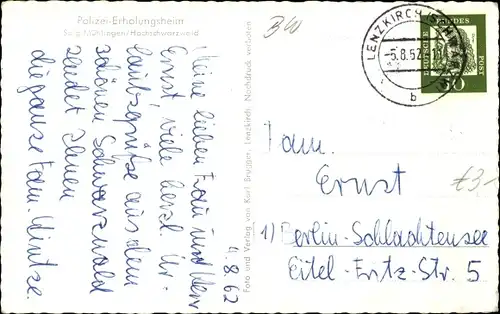 Polizei-Erholungsheim
Saig/Mühlingen/Hochschwarzwald
4.8.62
Meine lieben Frau und Herr
Ernst, viele herzl. Ur-
laubsgrüße aus dem
schönen Schwarzwald
sendet Ihnen
die ganze Fam. Wintze.
Foto und Verlag von Kurt Brugger, Lenzkirch. Nachdruck verboten
BW
LENZKIRCH (SCHWARZW)
-5.8.62
b
DEUTSCHE BUNDES POST
Fam.
Ernst
€3-
1) Berlin-Schlachtensee
Eitel-Fritz-Str. 5